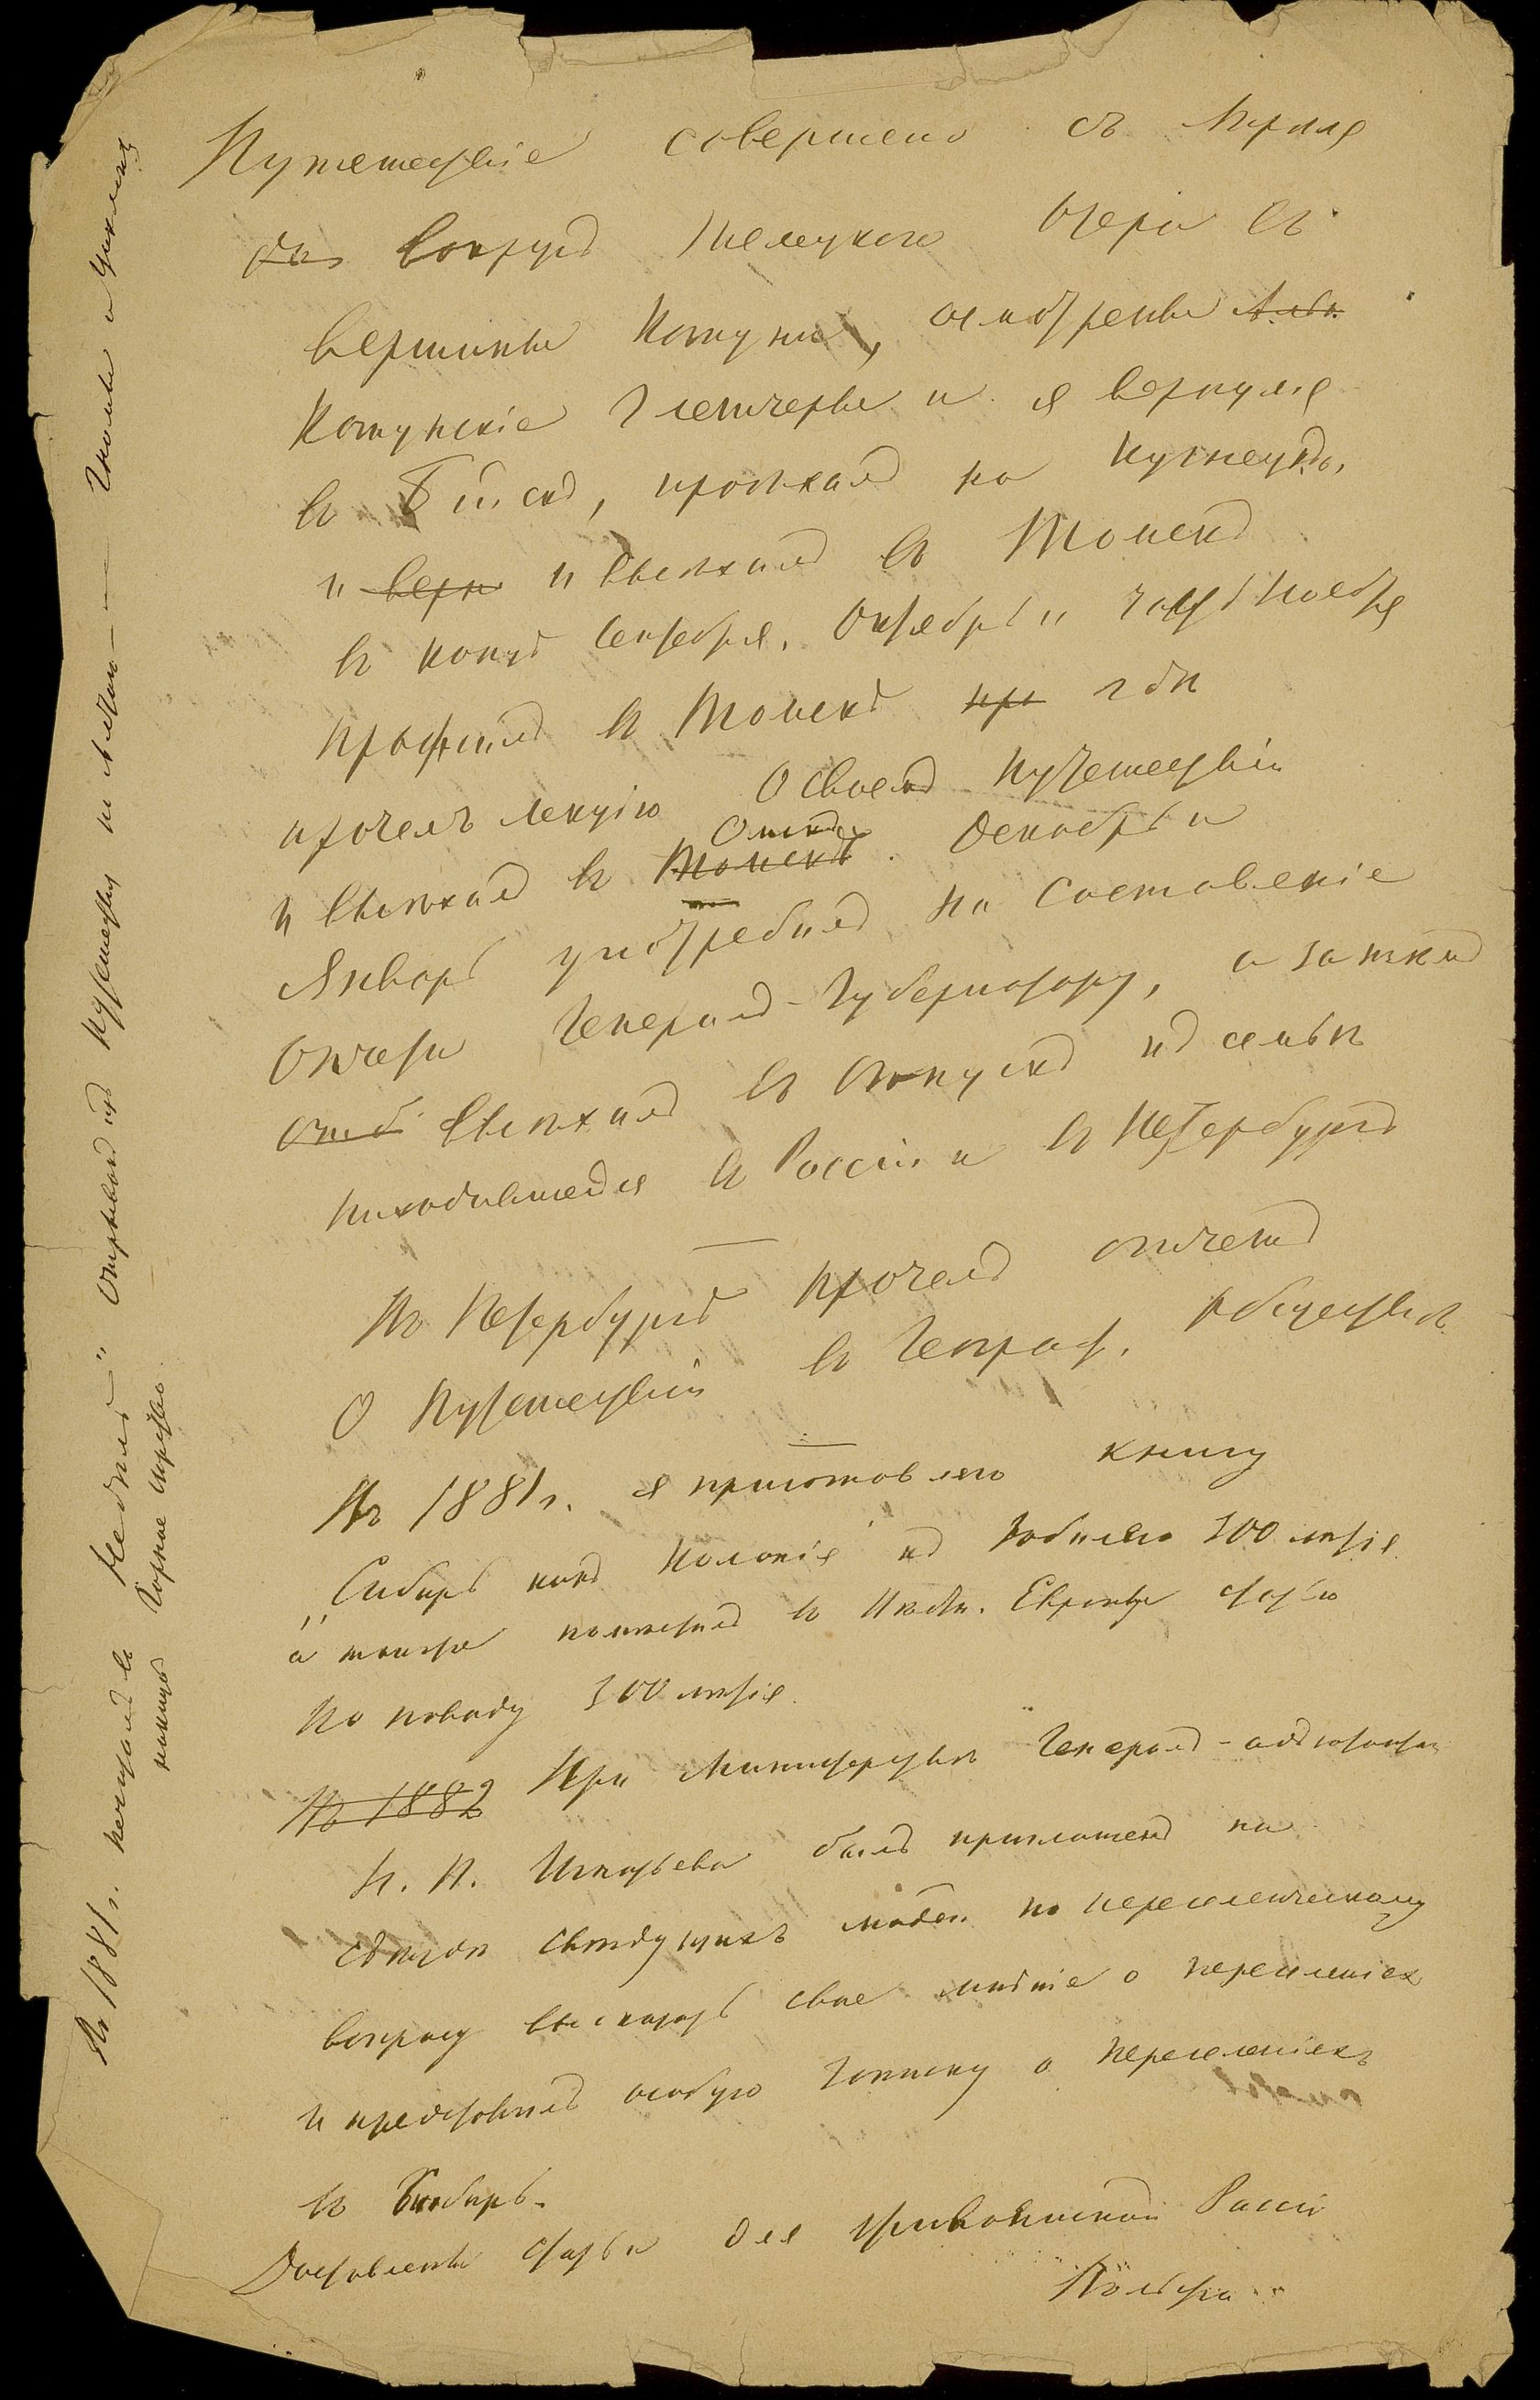 Путешествіе совершено съ Апреля
вокругъ Телецкаго Озера въ
вершины Катуни, осмотрены
Катунскіе Глетчеры и я вернулся
въ Бійскъ, проѣхалъ на Кузнецкъ,
и верн и выѣхалъ въ Томскъ
въ концѣ Сентября. Октябрь и часть Ноября
прожилъ въ Томскѣ гдѣ
прочелъ лекцію о своемъ путешествіи
и выѣхалъ въ Томскъ Омскъ. Декабрь и
Январь употребилъ на составленіе
Отчета Генералъ-Губернатору, а затѣмъ
выѣхалъ въ отпускъ къ семьѣ
находившейся въ Россіи и въ Петербургъ
Въ Петербургѣ прочелъ отчетъ
о Путешествіи въ Географ. обществѣ
Въ 1881 г. я приготовляю книгу
„Сибирь какъ Колонія къ Юбилею 300 лѣтія
а также помѣстилъ въ Вѣстн. Европы статью
по поводу 300 лѣтія.
Въ 1882 При Министерствѣ Генералъ-адъютанта
Н. П. Игнатьева былъ приглашенъ на
съѣздъ свѣдущихъ людей по переселенческому
вопросу высказать свое мнѣніе о переселеніяхъ
и представилъ особую записку о переселеніяхъ
въ Сибирь.
Доставлены статьи для Живописной Россіи
Вольфа
Въ 1881 г. печаталъ въ Недѣлѣ" отрывки изъ Путешествія
Горное Царство